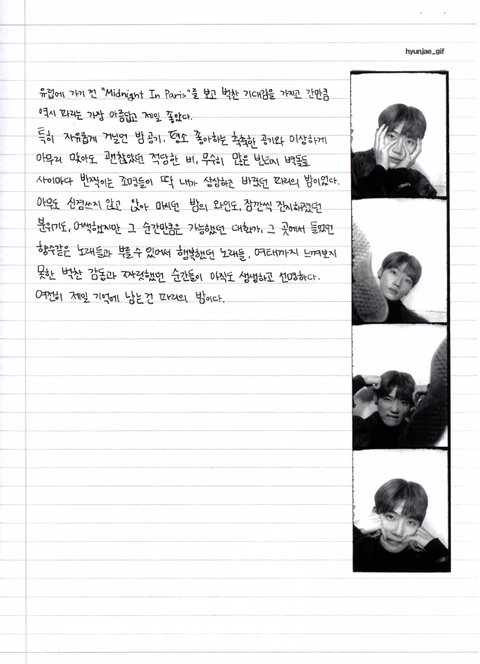 hyunjae_gif
유럽에 가기 전 "Midnight In Paris"를 보고 벅찬 기대감을 가지고 간만큼
역시 파리는 가장 아름답고 제일 좋았다.
특히 자유롭게 거닐던 밤 공기, 평소 좋아하는 축축한 공기와 이상하게
아무리 맞아도 괜찮았던 적당한 비, 무수히 많은 빈티지 병들
사이마다 반짝이는 조명들이 딱 내가 상상하고 바랬던 파리의 밤이었다.
아무도 신경쓰지 않고 앉아 마시던 밤의 와인도, 잠깐씩 진지해졌던
분위기도, 어색했지만 그 순간만큼은 가능했던 대화가, 그 곳에서 들었던
향수같은 노래들과 부를 수 있어서 행복했던 노래들, 여태까지 느껴보지
못한 벅찬 감동과 자각했던 순간들이 아직도 생생하고 선명하다.
여전히 제일 기억에 남는건 파리의 밤이다.